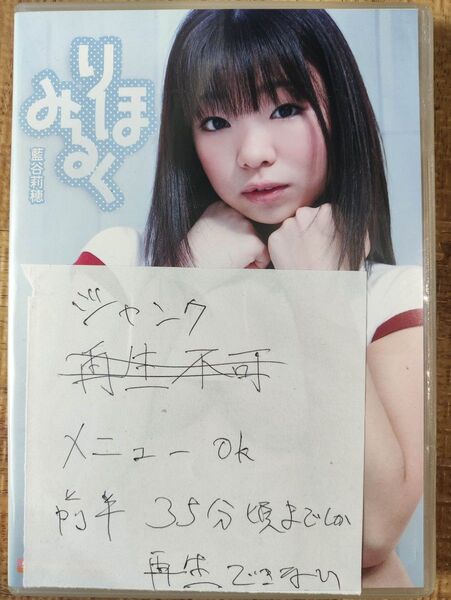 りほ
みるく
藍谷莉穂
ジャンク
再生不可
メニュー OK
前半 35分頃までしか
再生できない